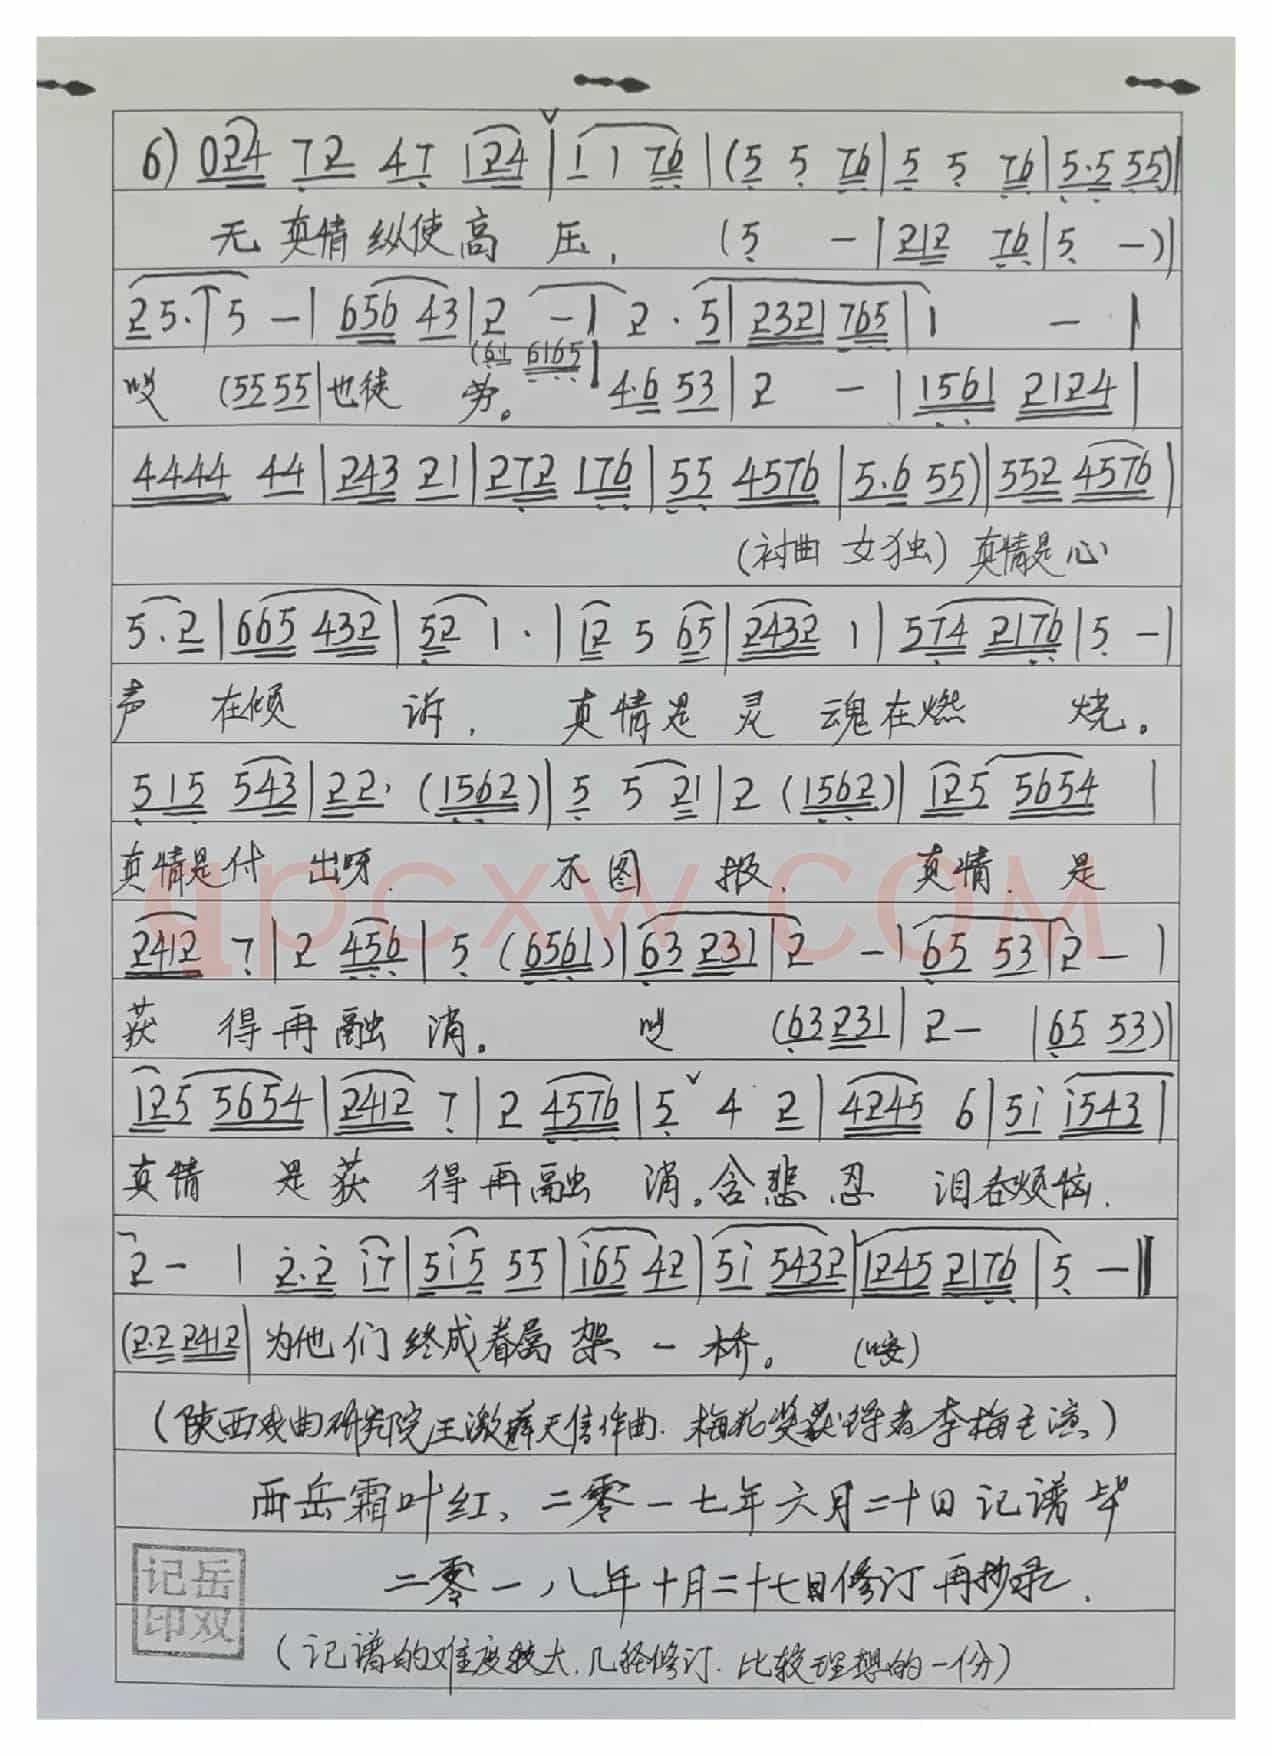 6) 024 72 47 124 | 1 1 76 | (5 5 76 | 5 5 76 | 5·5 55) |
无真情纵使高压, (5 - | 212 76 | 5 -) |
25· 5 - | 656 43 | 2 - | 2 · 5 | 2321 765 | 1 - |
(61 6165 |
哎 (55 55 | 也徒 劳。 4·6 53 | 2 - | 1561 2124 |
4444 44 | 243 21 | 272 176 | 55 4576 | 5·6 55) | 552 4576 |
(衬曲 女独) 真情是心
5·2 | 665 432 | 52 1· | 12 5 65 | 2432 1 | 574 2176 | 5 - |
声 在倾 诉, 真情是灵魂在燃 烧。
515 543 | 22· (1562) | 5 5 21 | 2 (1562) | 125 5654 |
真情是付 出呀. 不图 报. 真情 是
apcxw.com
2412 7 | 2 456 | 5 (6561) | 63 231 | 2 - | 65 53 | 2 - |
获 得再融 消。 哎 (63 231 | 2 - | 65 53) |
125 5654 | 2412 7 | 2 4576 | 5 4 2 | 4245 6 | 5i i543 |
真情 是获 得再融 消。含悲忍 泪吞烦恼.
2 - | 2·2 i7 | 5i5 55 | i65 42 | 5i 5432 | 1245 2176 | 5 - ‖
(2·2 2412 | 为他们终成眷属架一桥。 (哎)
(陕西戏曲研究院王激薛天信作曲. 梅花奖获得者李梅主演)
西岳霜叶红、二零一七年六月二十日记谱毕
二零一八年十月二十七日修订再抄录.
记岳
印双
(记谱的难度较大.几经修订.比较理想的一份)